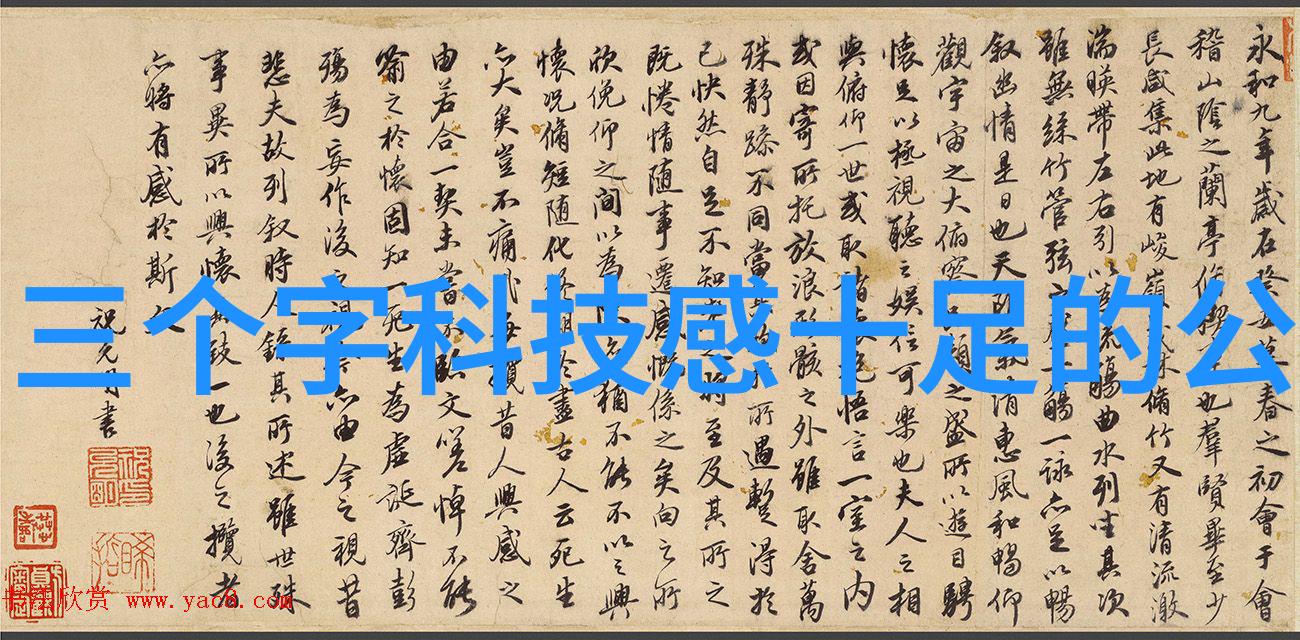 永和九年歲在癸丑暮春之初會于會
稽山陰之蘭亭脩禊事也羣賢畢至少
長咸集此地有峻嶺茂林脩竹又有清流激
湍暎帶左右引以為流觴曲水列坐其次
雖無絲竹管弦之盛一觴一詠亦足以暢
叙幽情是日也天朗氣清惠風和暢仰
觀宇宙之大俯察品類之盛所以遊目騁
懷足以極視聽之娛信可樂也夫人之相
與俯仰一世或取諸懷抱悟言一室之內
或因寄所托放浪形骸之外雖取舍萬
殊静躁不同當其欣於所遇蹔得於
己快然自足不知老之將至及其所之
既惓情随事遷感慨係之矣向之所
欣俛仰之間以為陳迹猶不能不以之興
懷况脩短随化終期於盡古人云死生
亦大矣豈不痛哉每攬昔人興感之
由若合一契未嘗不臨文嗟悼不能
喻之於懷固知一死生為虛誕齊彭
殤為妄作後之視今亦由今之視昔
悲夫故列叙時人錄其所述雖世殊
事異所以興懷其致一也後之攬者
亦將有感於斯文
祝允明書
三个字科技感十足的公
书法欣赏 www.yac8.com